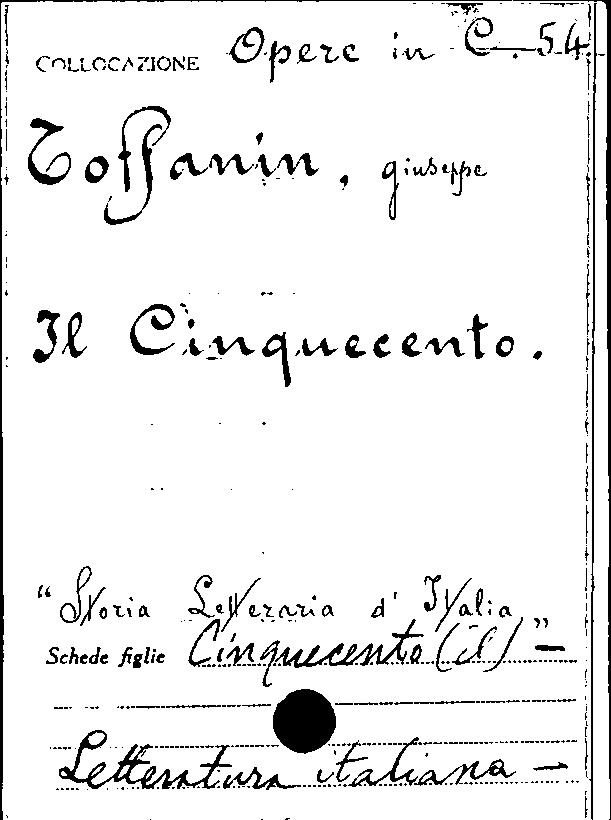 COLLOCAZIONE Opere in C. 54.
Toffanin, Giuseppe
Il Cinquecento.
"Storia Letteraria d'Italia,"
Schede figlie Cinquecento (il) —
Letteratura italiana —